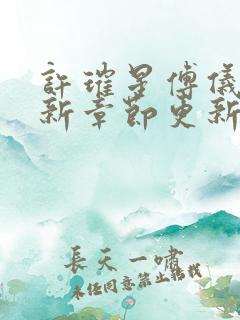 許璀星傅儀
新章節更新
長天一嘯
未經同意禁止轉載